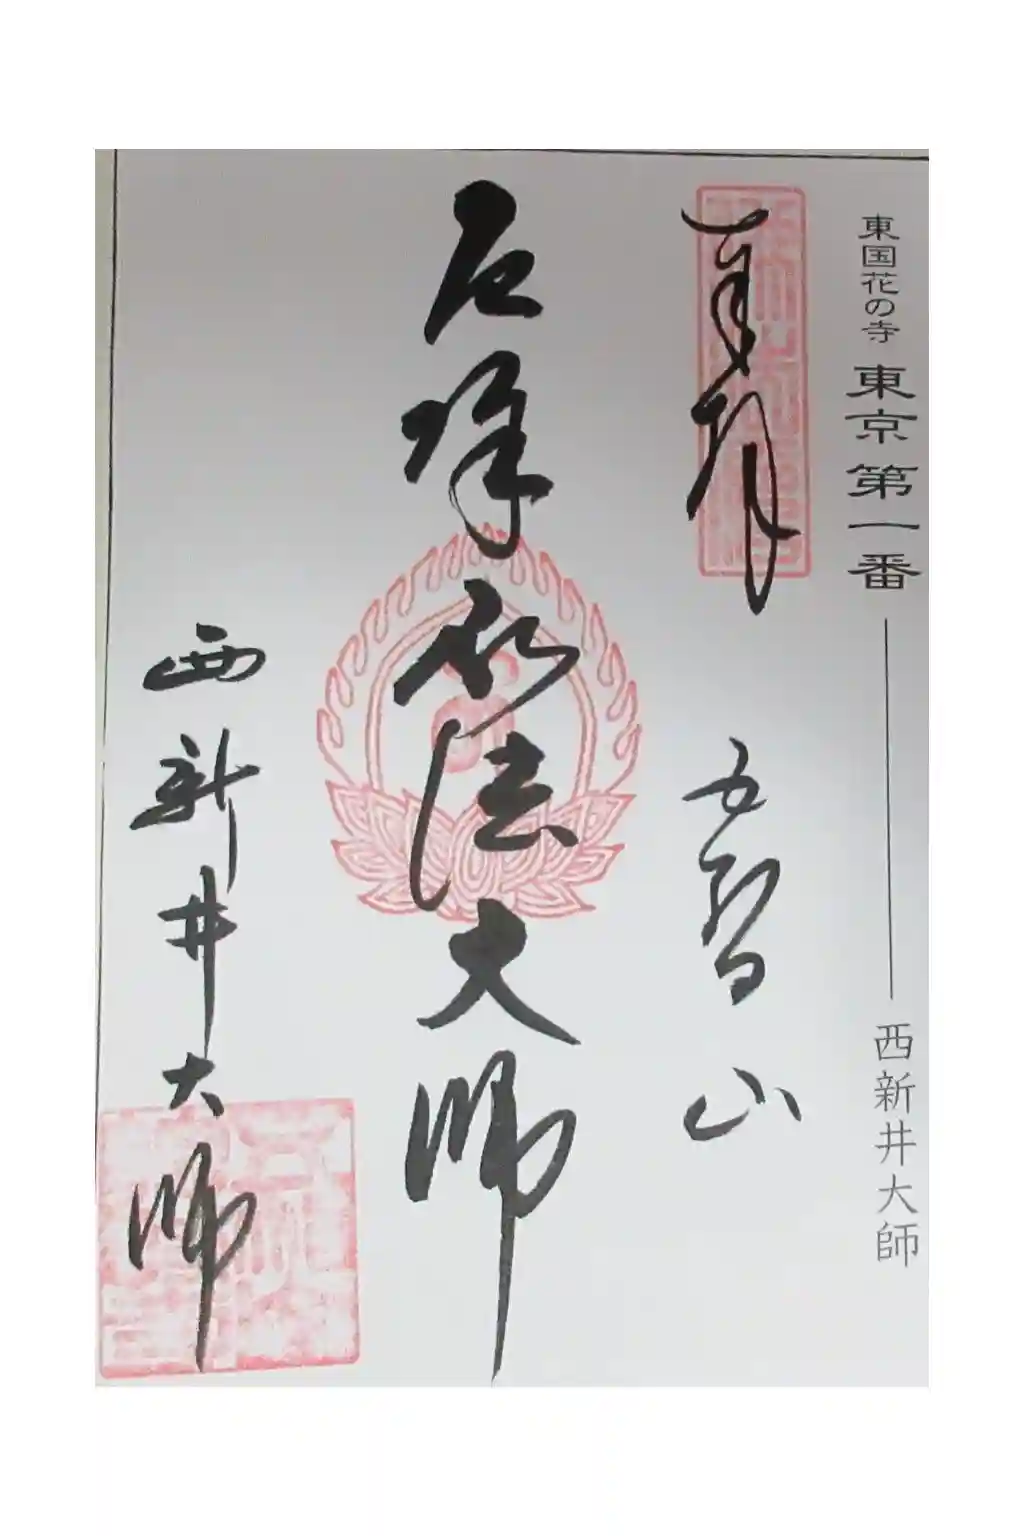 東国花の寺 東京第一番
西新井大師
奉拝 五智山
厄除弘法大師
西新井大師